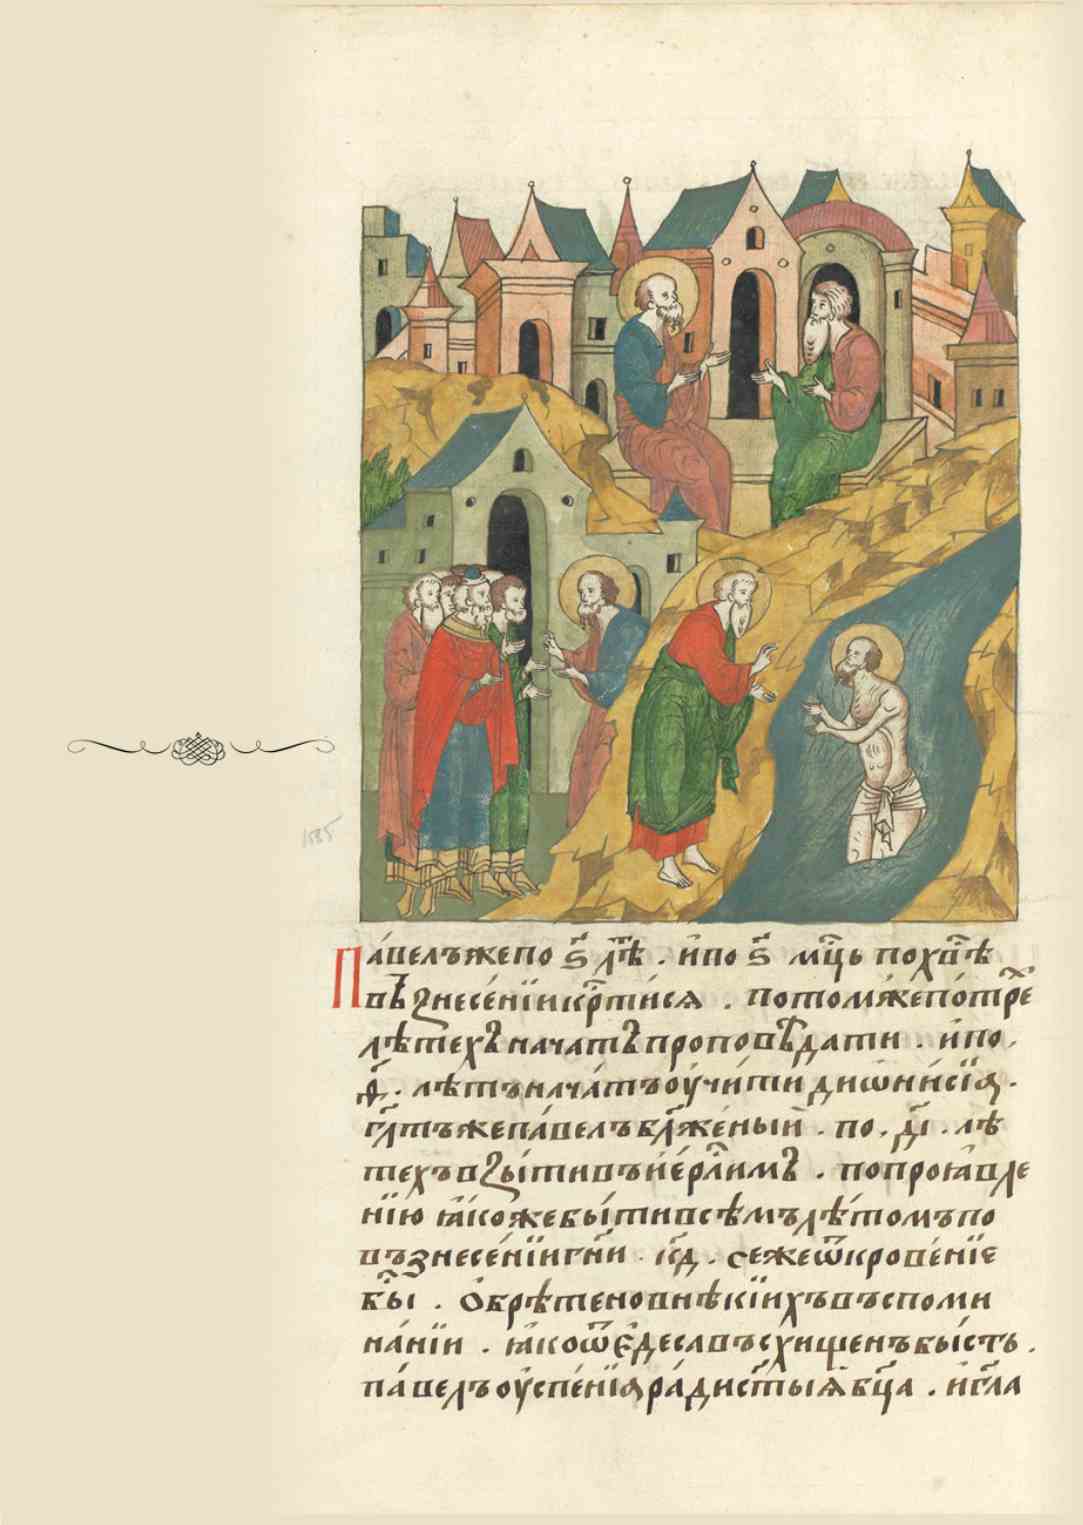 Па́велъ же по ѕ҃ лѣ́тѣ . и҆ по ѕ҃ мц҃ь по хв҃ѣ
въꙁнесе́нїи кр҃ти́сѧ . пото́м же по́ тре
лѣтехъ нача́тъ проповѣ́дати . и҆ по .
д҃ . лѣ́тъ нача́тъ ѹ҆чи́ти диѡни́сїѧ .
гл҃тъ же па́велъ бл҃же́ный . по . д҃і . лѣ
техъ вꙁы́ти въ і҆ер҃ли́мъ . по проꙗ҆вле
нїю ꙗ҆́коже бы́ти всѣ́мъ лѣ́томъ по
въꙁнесе́нїи гн҃и . к҃д . се же ѿкрове́нїе
бы҃ . Ѡ҆брѣтено в нѣ́кїихъ въспоми
на́нїи . ꙗ҆́ко ѿ Є҆де́са въсхи́щенъ бы́сть .
па́велъ ѹ҆спе́нїѧ ра́ди ст҃ы́ѧ бц҃а . и҆ гл҃а
1585